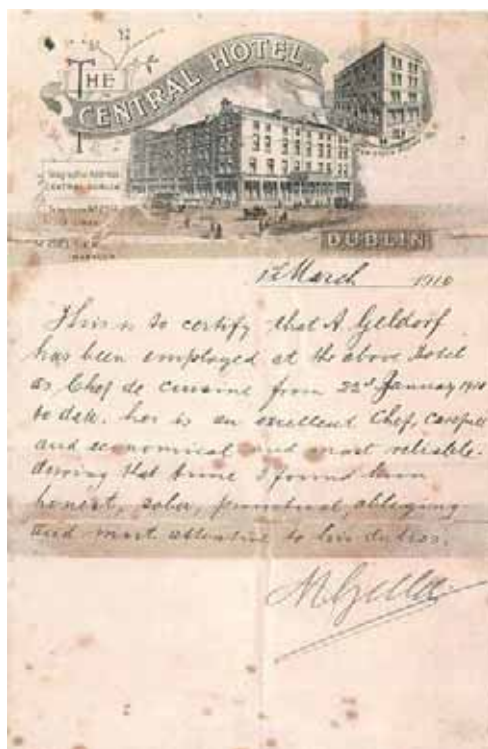 THE
CENTRAL HOTEL,
Telegraphic Address
CENTRAL DUBLIN
MANAGER
DUBLIN
March 1910
This is to certify that A. Geldorf
has been employed at the above Hotel
as Chef de cuisine from 22d January 1910
to date. hee is an excellent Chef, careful
and economical and most reliable.
during that time I found him
honest, sober, punctual, obliging
and most attentive to his duties.